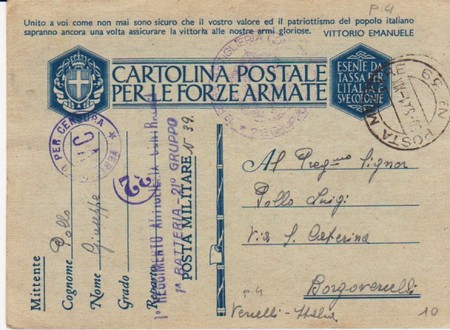 p.4
Unito a voi come non mai sono sicuro che il vostro valore ed il patriottismo del popolo italiano
sapranno ancora una volta assicurare la vittoria alle nostre armi gloriose. VITTORIO EMANUELE
CARTOLINA POSTALE
PER LE FORZE ARMATE
ESENTE DA
TASSA PER
L'ITALIA
SUE COLONIE
POSTA MILITARE
N 39
PER CENSURA
22
Mittente
Cognome Pollo
Nome Giuseppe
Grado
Reparto
1° REGGIMENTO ARTIGLIERIA
1ª BATTERIA - 21° GRUPPO
POSTA MILITARE N° 39.
Al Signor
Pollo Luigi
Via S. Caterina
Borgovercelli
p.4
Vercelli - Italia
10